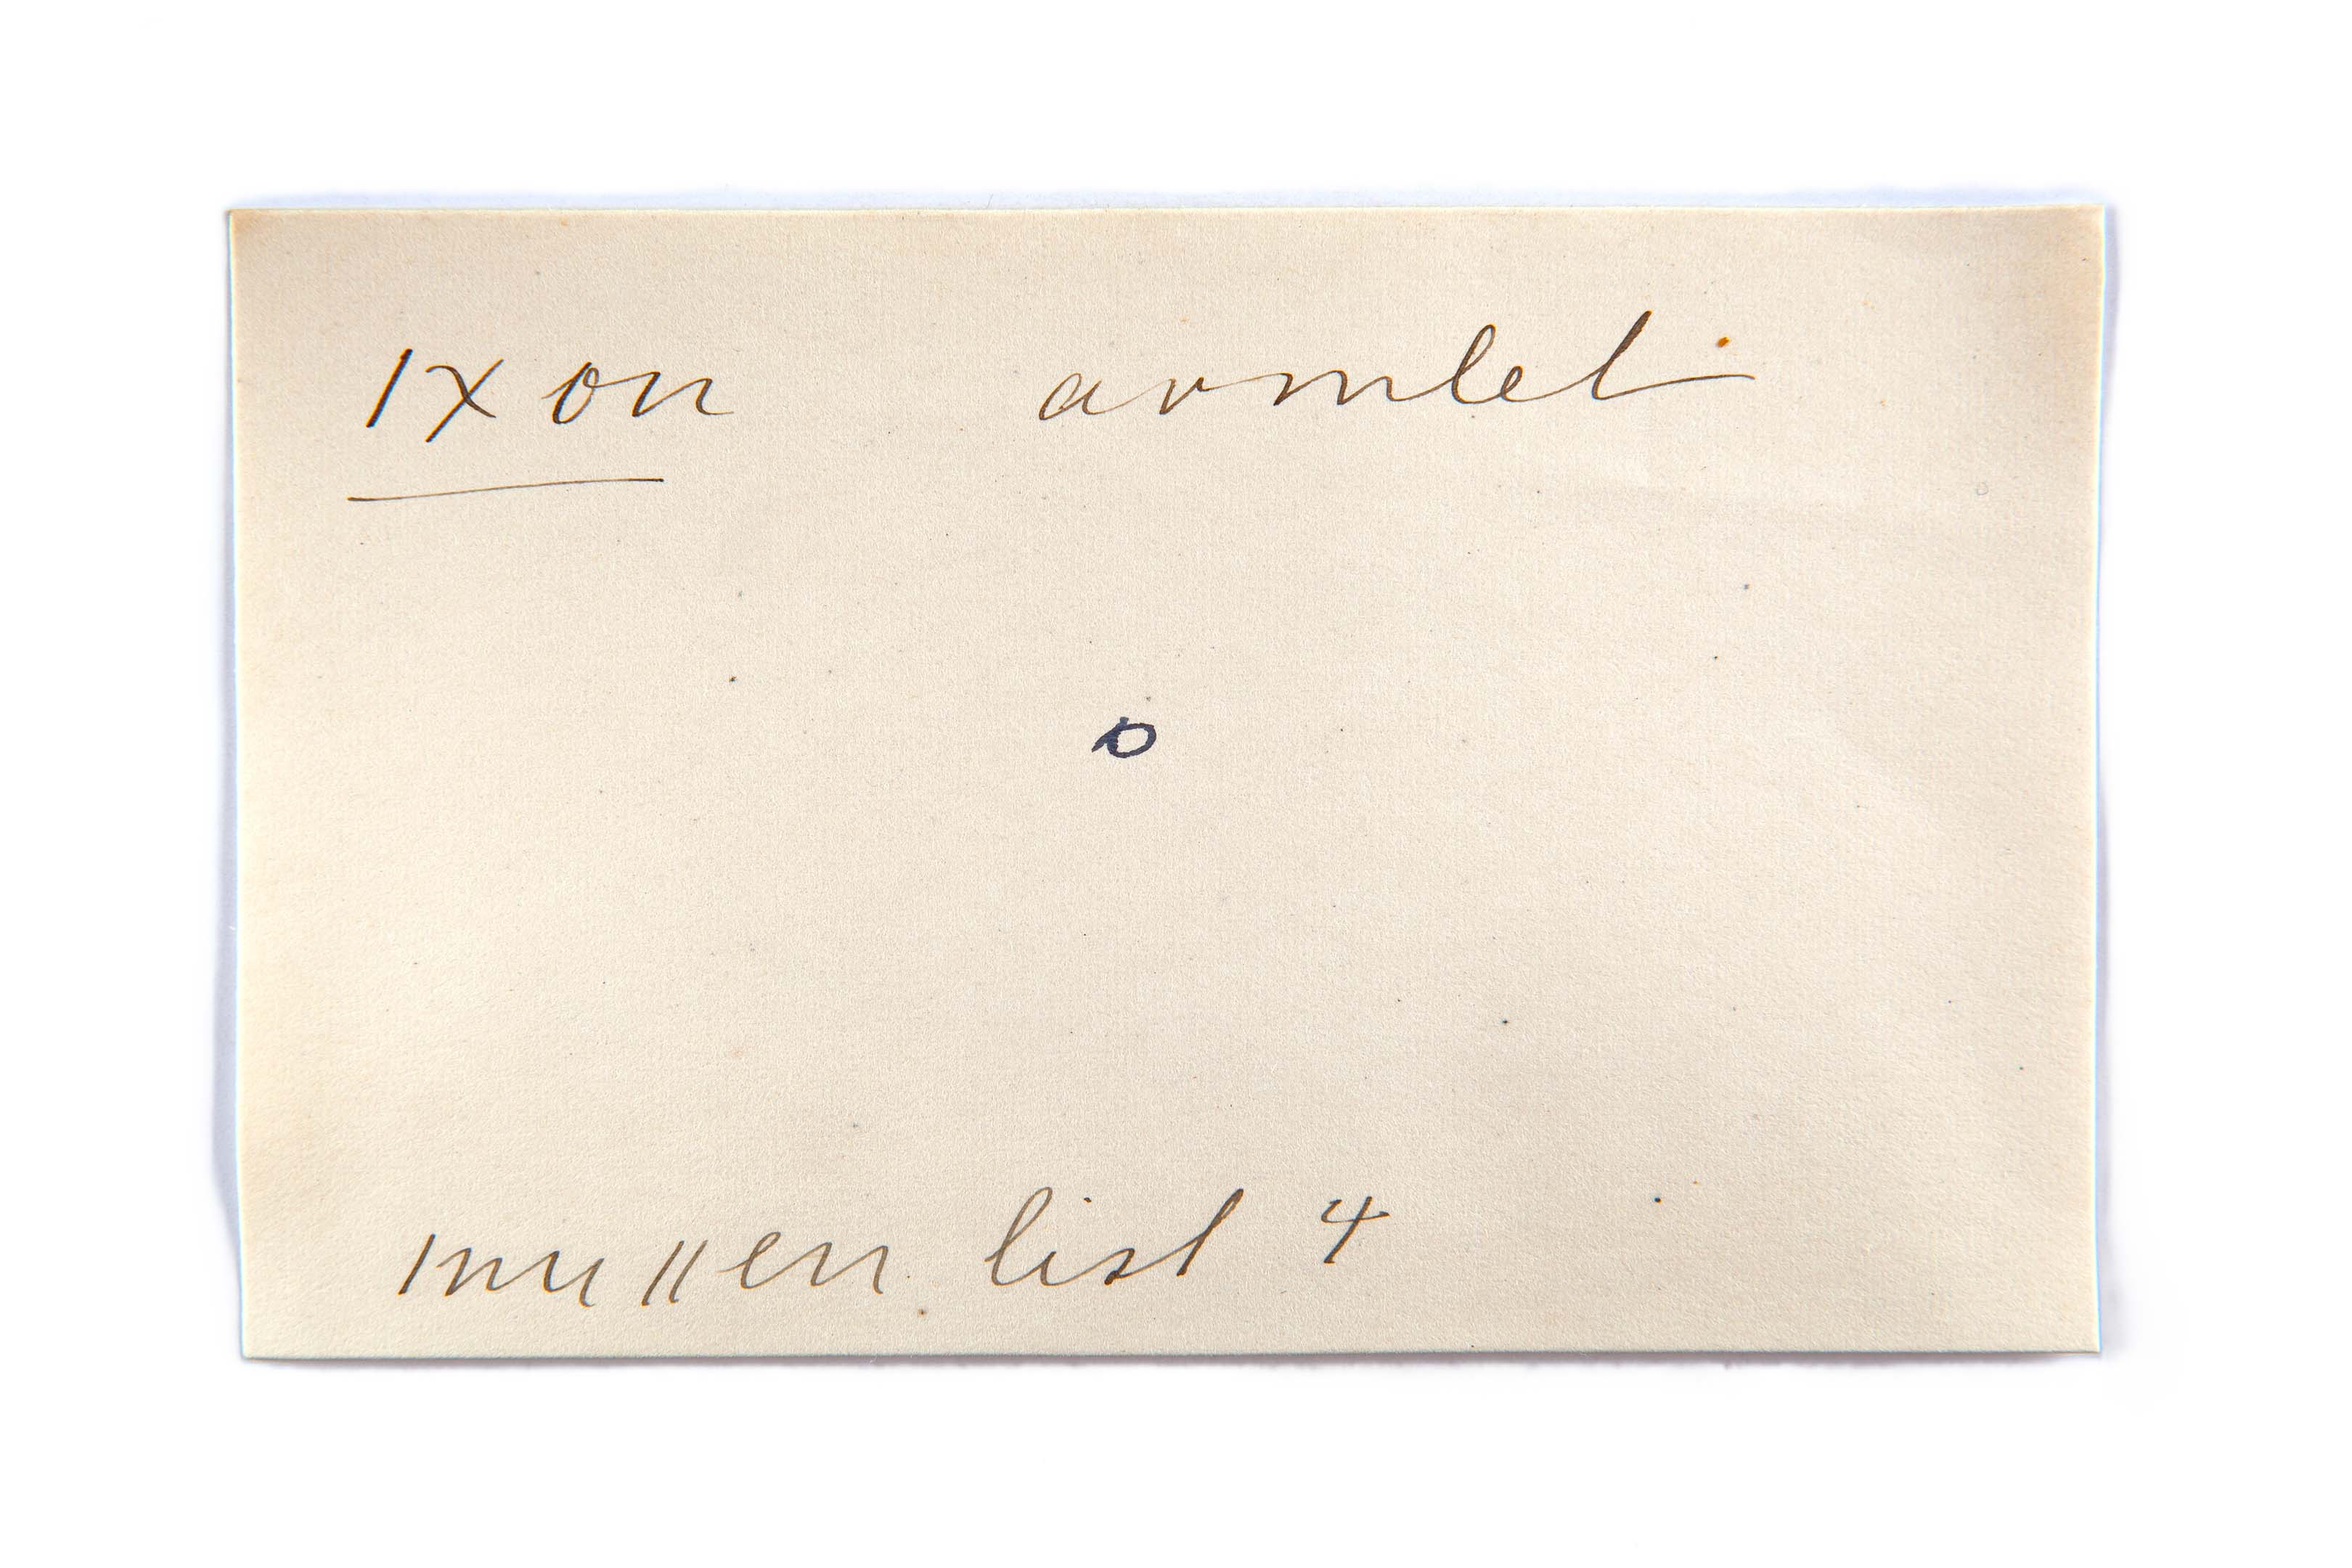 ıxon armlet
o
mullen list 4